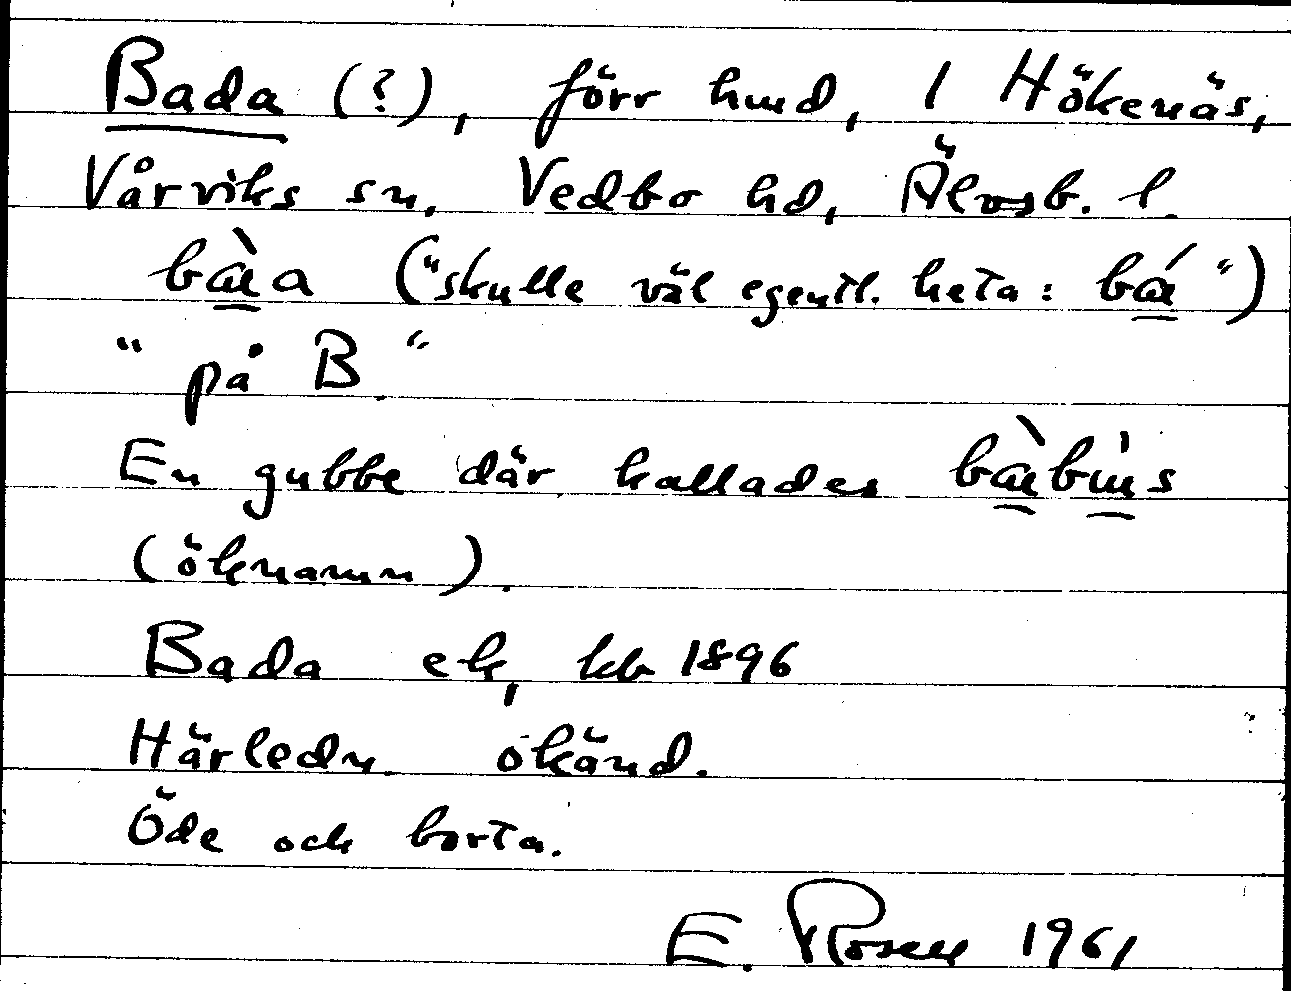 Bada (?), förr hmd, 1 Hökenäs,
Vårviks sn, Vedbo hd, Älvsb. l.
bàa ("skulle väl egentl. heta: bá")
"på B."
En gubbe där kallades
(öknamn).
Bada ek, kb 1896
Härledn. okänd.
Öde och borta.
E. Rosell 1961